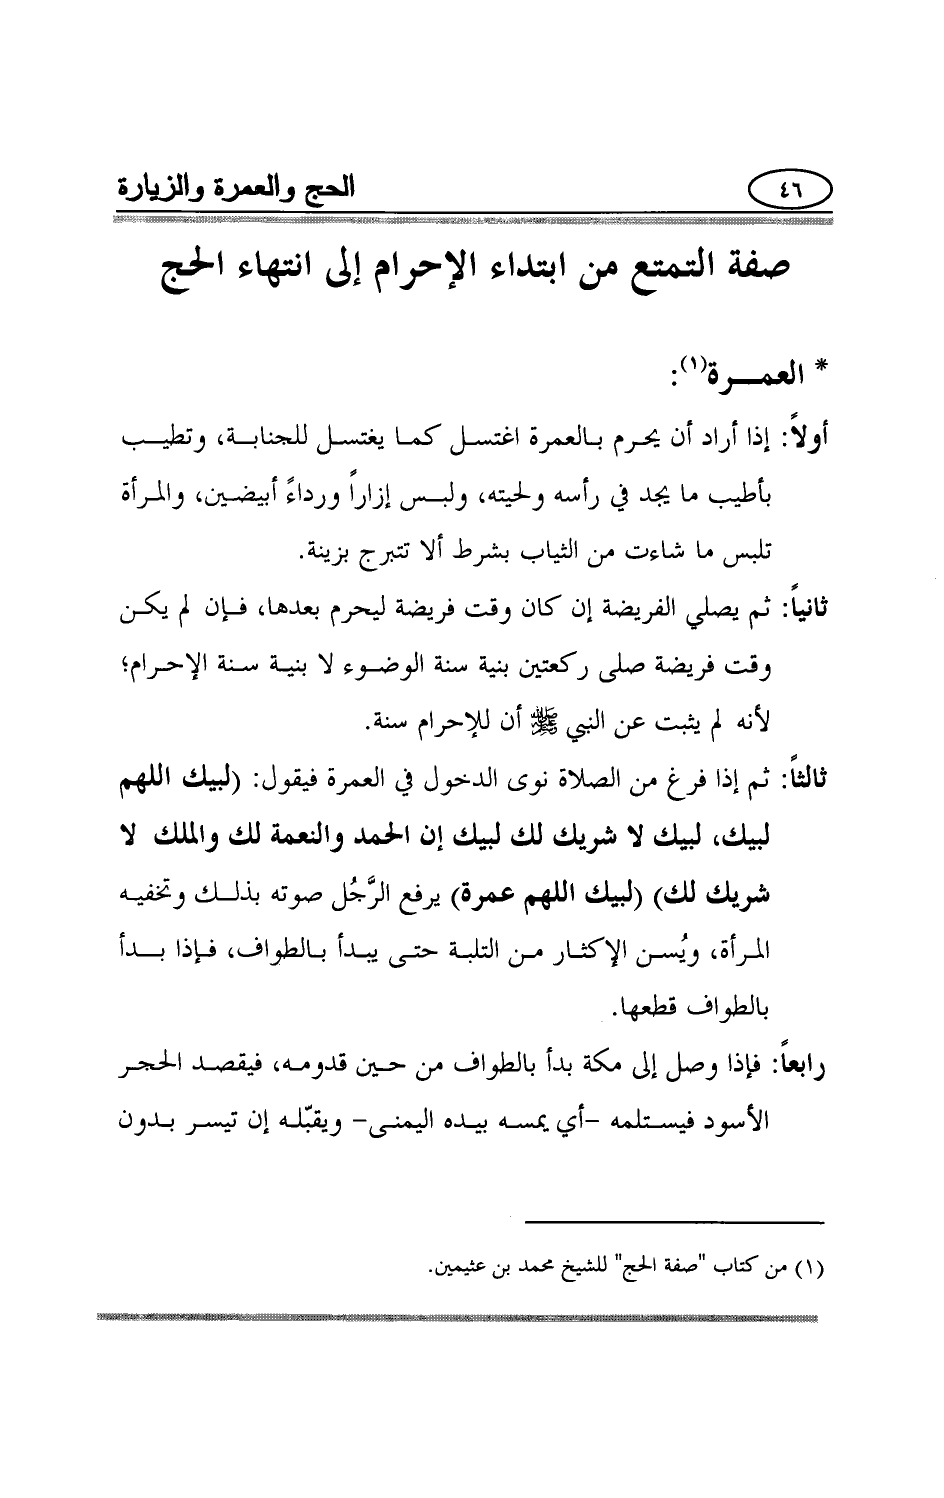 ٤٦
الحج والعمرة والزيارة
صفة التمتع من ابتداء الإحرام إلى انتهاء الحج
* العمـــرة(١):
أولاً: إذا أراد أن يحرم بالعمرة اغتسل كما يغتسل للجنابة، وتطيب
بأطيب ما يجد في رأسه ولحيته، ولبس إزاراً ورداءً أبيضين، والمرأة
تلبس ما شاءت من الثياب بشرط ألا تتبرج بزينة.
ثانياً: ثم يصلي الفريضة إن كان وقت فريضة ليحرم بعدها، فإن لم يكن
وقت فريضة صلى ركعتين بنية سنة الوضوء لا بنية سنة الإحرام؛
لأنه لم يثبت عن النبي ﷺ أن للإحرام سنة.
ثالثاً: ثم إذا فرغ من الصلاة نوى الدخول في العمرة فيقول: (لبيك اللهم
لبيك، لبيك لا شريك لك لبيك إن الحمد والنعمة لك والملك لا
شريك لك) (لبيك اللهم عمرة) يرفع الرَّجُل صوته بذلك وتخفيه
المرأة، ويُسن الإكثار من التلبة حتى يبدأ بالطواف، فإذا بدأ
بالطواف قطعها.
رابعاً: فإذا وصل إلى مكة بدأ بالطواف من حين قدومه، فيقصد الحجر
الأسود فيستلمه -أي يمسه بيده اليمنى- ويقبّله إن تيسر بدون
(١) من كتاب "صفة الحج" للشيخ محمد بن عثيمين.